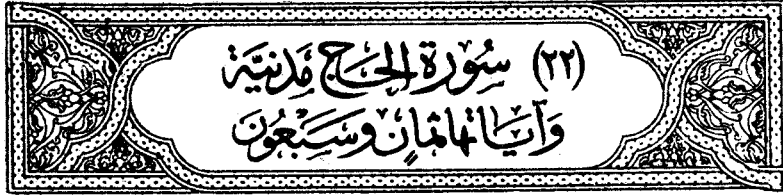 (٢٢) سُورَة الحَجّ مَدَنيَّة
وَآيَاتهَا ثمَانٍ وَسَبْعُون